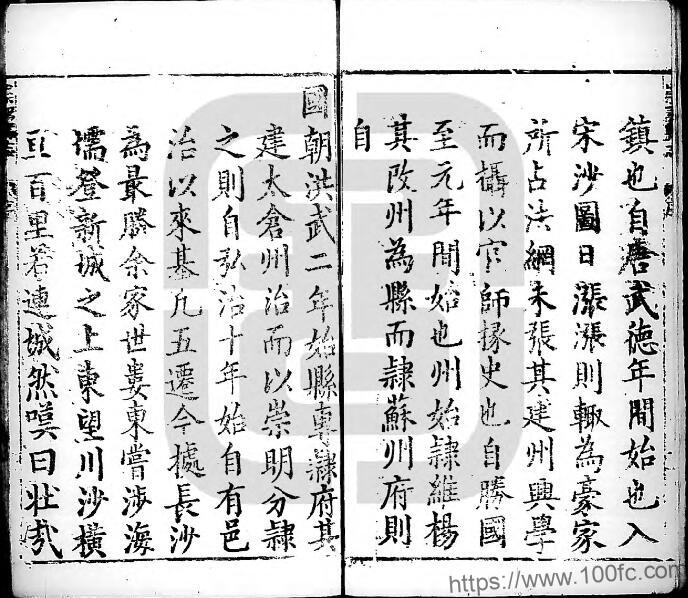 鎮也自唐武德年間始也入
宋沙圖日漲漲則輒為豪家
所占法網未張其建州興學
而攝以官師掾史也自勝國
至元年間始也州始隸維楊
其改州為縣而隸蘇州府則
自
國朝洪武二年始縣專隸府其
建太倉州治而以崇明分隸
之則自弘治十年始自有邑
治以來基凡五遷今據長沙
為最勝余家世婁東嘗涉海
壖登新城之上東望川沙橫
亘百里若連城然嘆曰壯哉
https://www.100fc.com